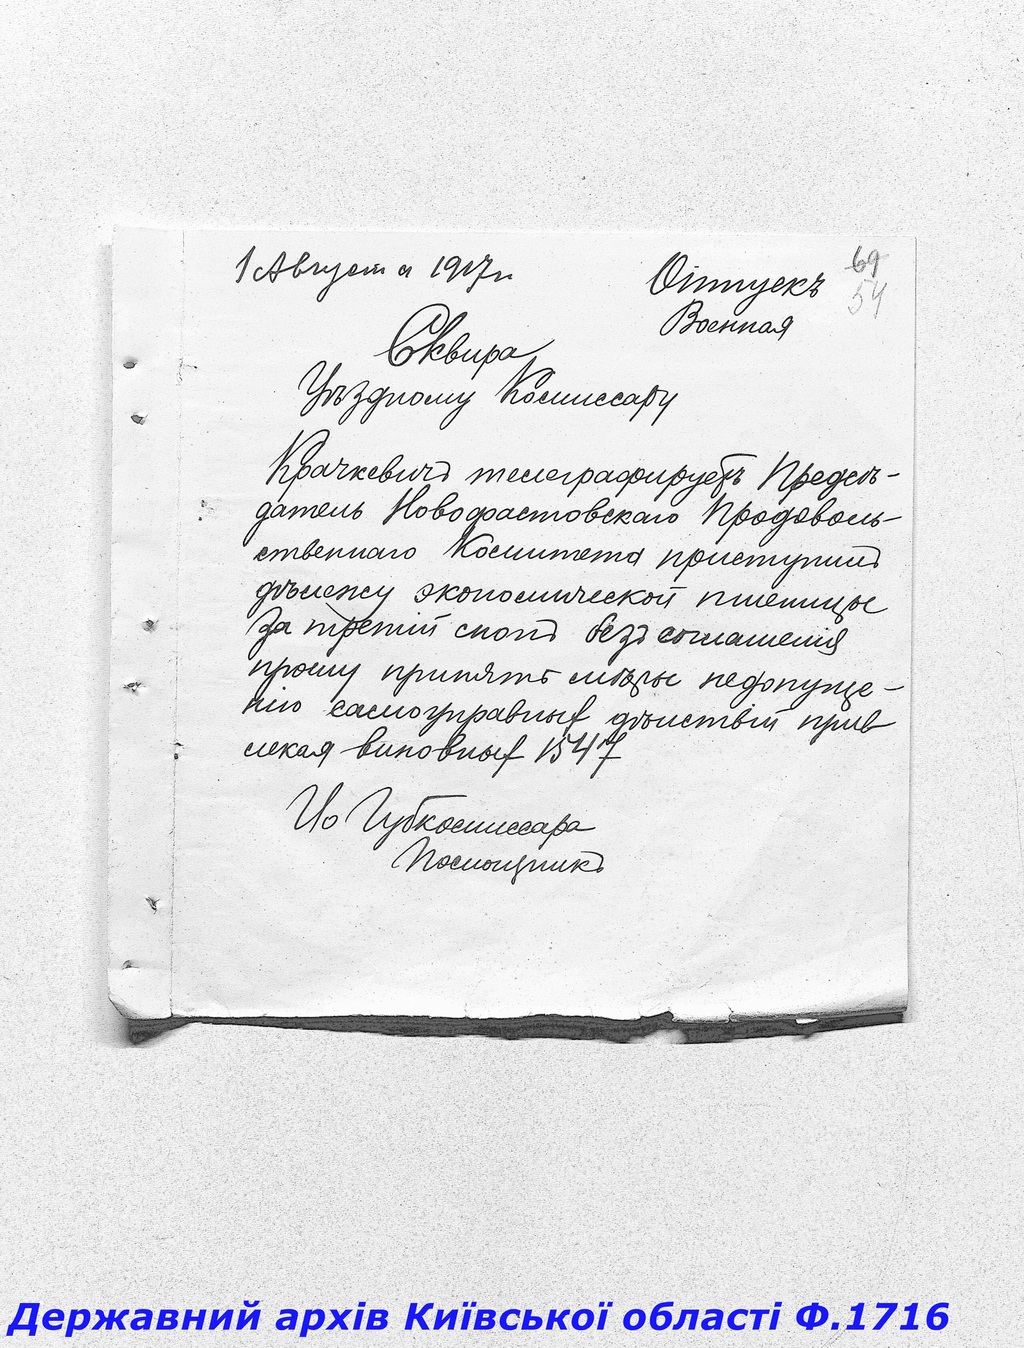 1 Августа 1917 г.
Отпускъ
69
54
Военная
Сквира
Уѣздному Комиссару
Крачкевичъ телеграфируетъ Предсѣ-
датель Новофастовскаго Продоволь-
ственнаго Комитета приступилъ
дѣлежу экономической пшеницы
За третий снопъ безъ соглашенія
прошу принять мѣры недопуще-
нію самоуправныхъ дѣйствій прив
лекая виновныхъ 1547
Ио Губкомиссара
Помощникъ
Державний архів Київської області Ф.1716